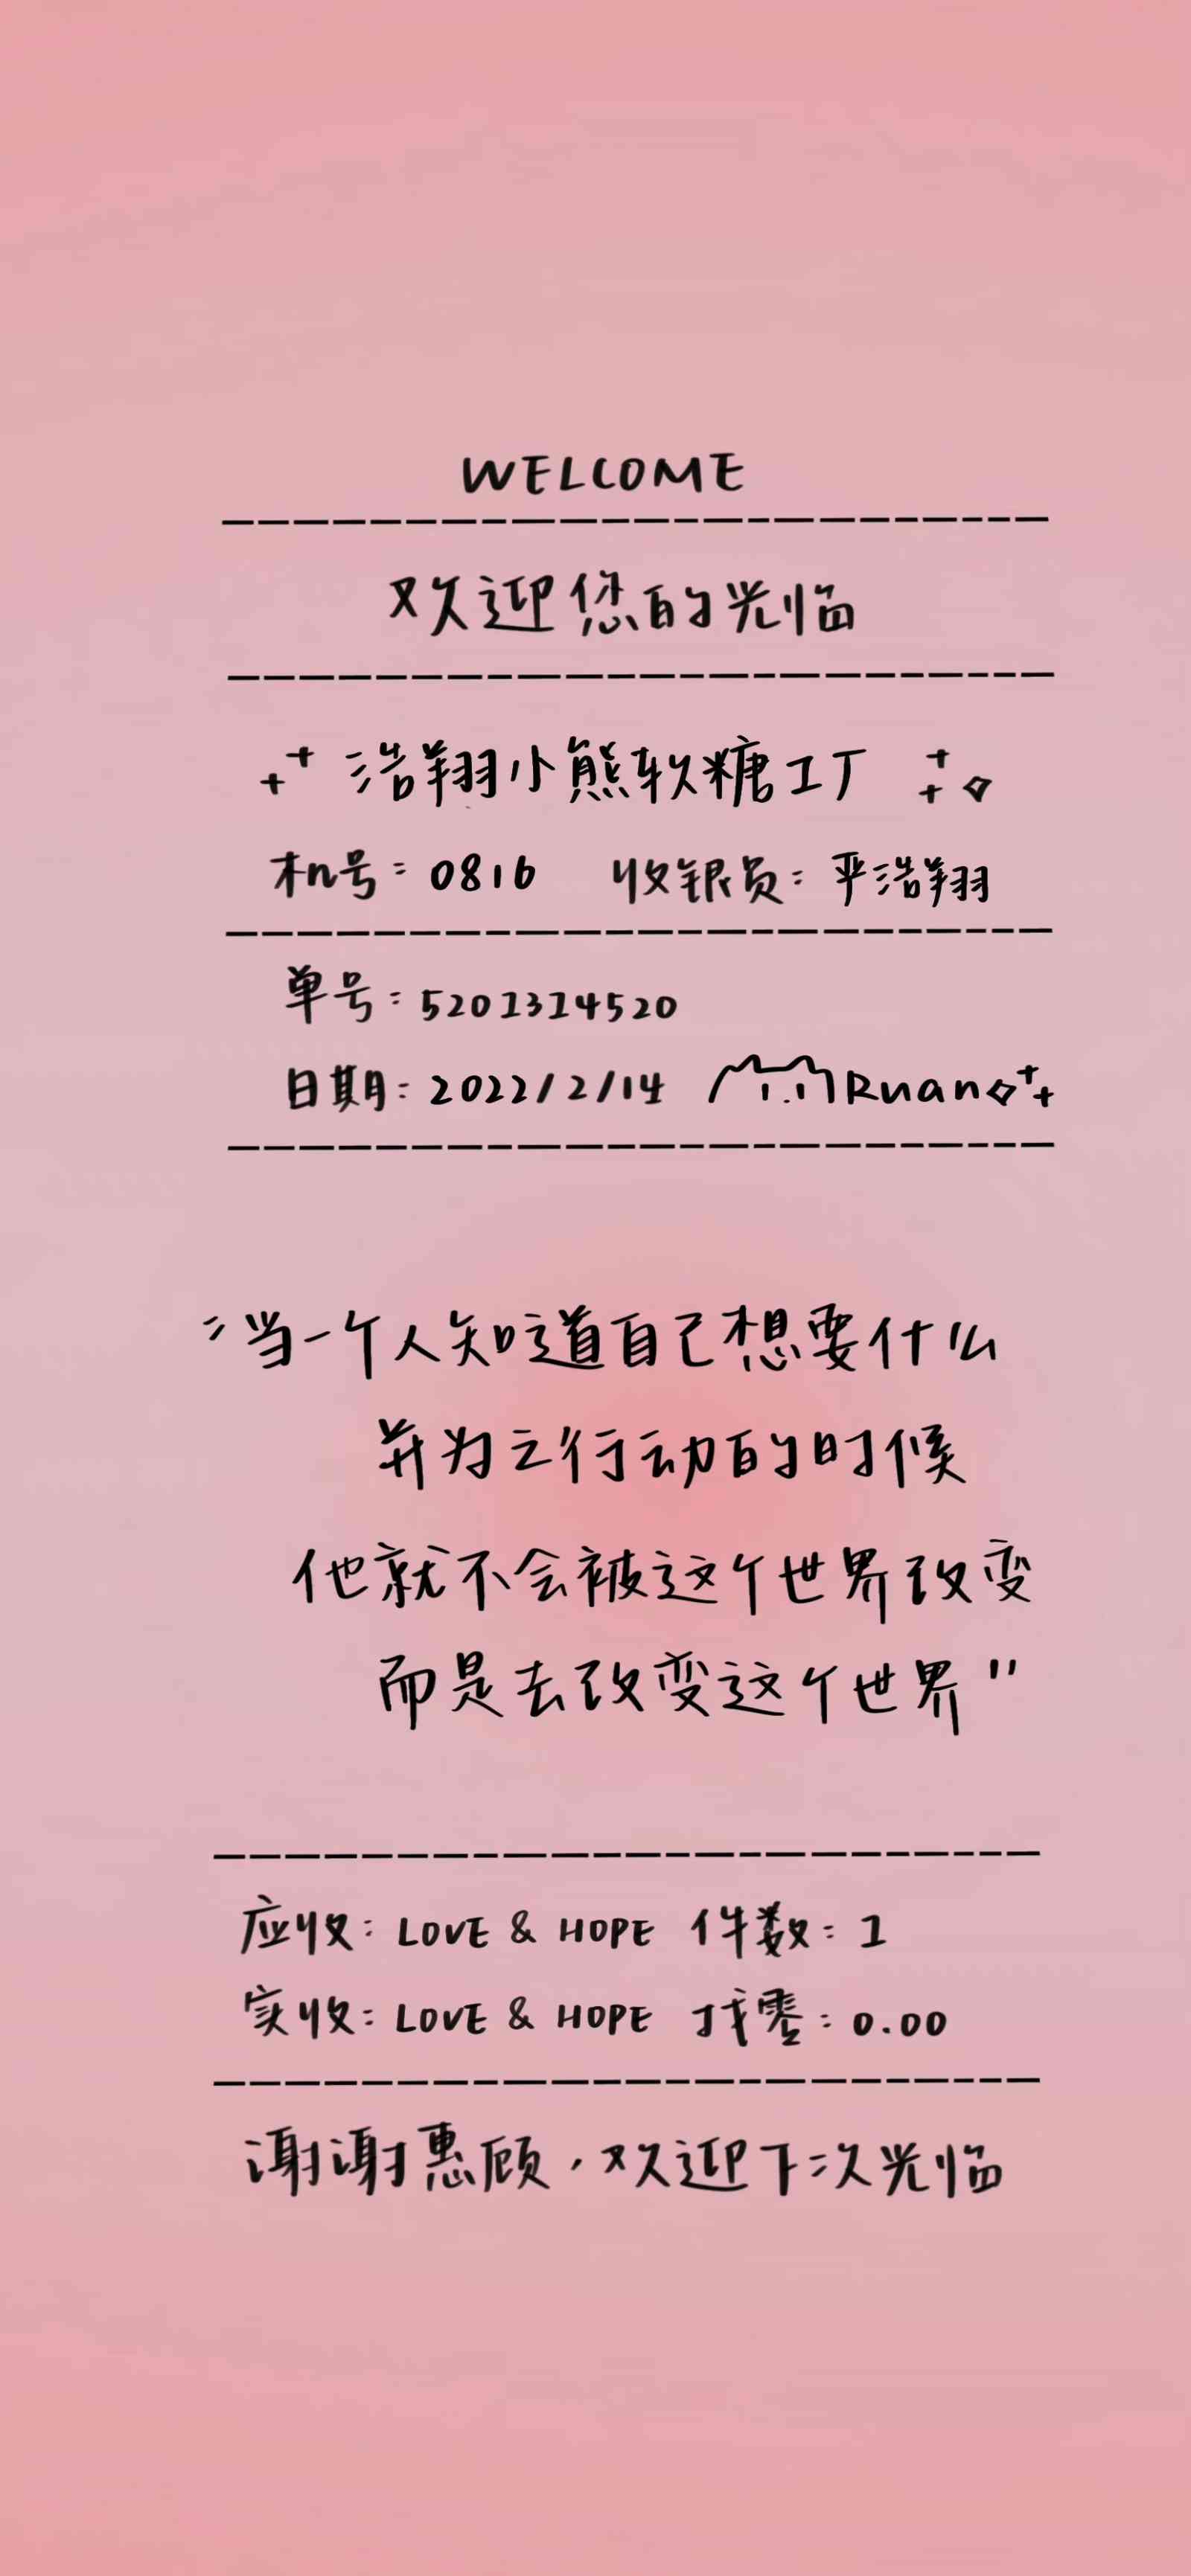 WELCOME
欢迎您的光临
浩翔小熊软糖工厂
机号：0816 收银员：严浩翔
单号：5201314520
日期：2022/2/14 Ruan
"当一个人知道自己想要什么
并为之行动的时候
他就不会被这个世界改变
而是去改变这个世界"
应收：LOVE & HOPE 件数：1
实收：LOVE & HOPE 找零：0.00
谢谢惠顾，欢迎下次光临